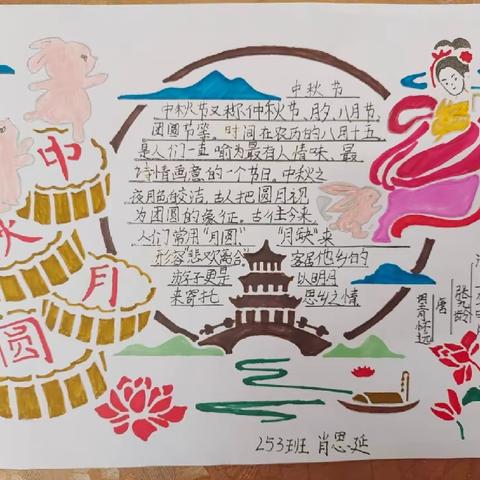 中
秋
月
圆
中秋节
中秋节又称仲秋节、月夕、八月节、
团圆节等。时间在农历的八月十五,
是人们一直喻为最有人情味、最
诗情画意的一个节日。中秋之
夜月色皎洁,古人把圆月视
为团圆的象征。古往今来,
人们常用“月圆” “月缺”来
形容“悲欢离合” 客居他乡的
游子更是 以明月
来寄托 思乡之情
望月怀远
唐
张九龄
253班 肖思延